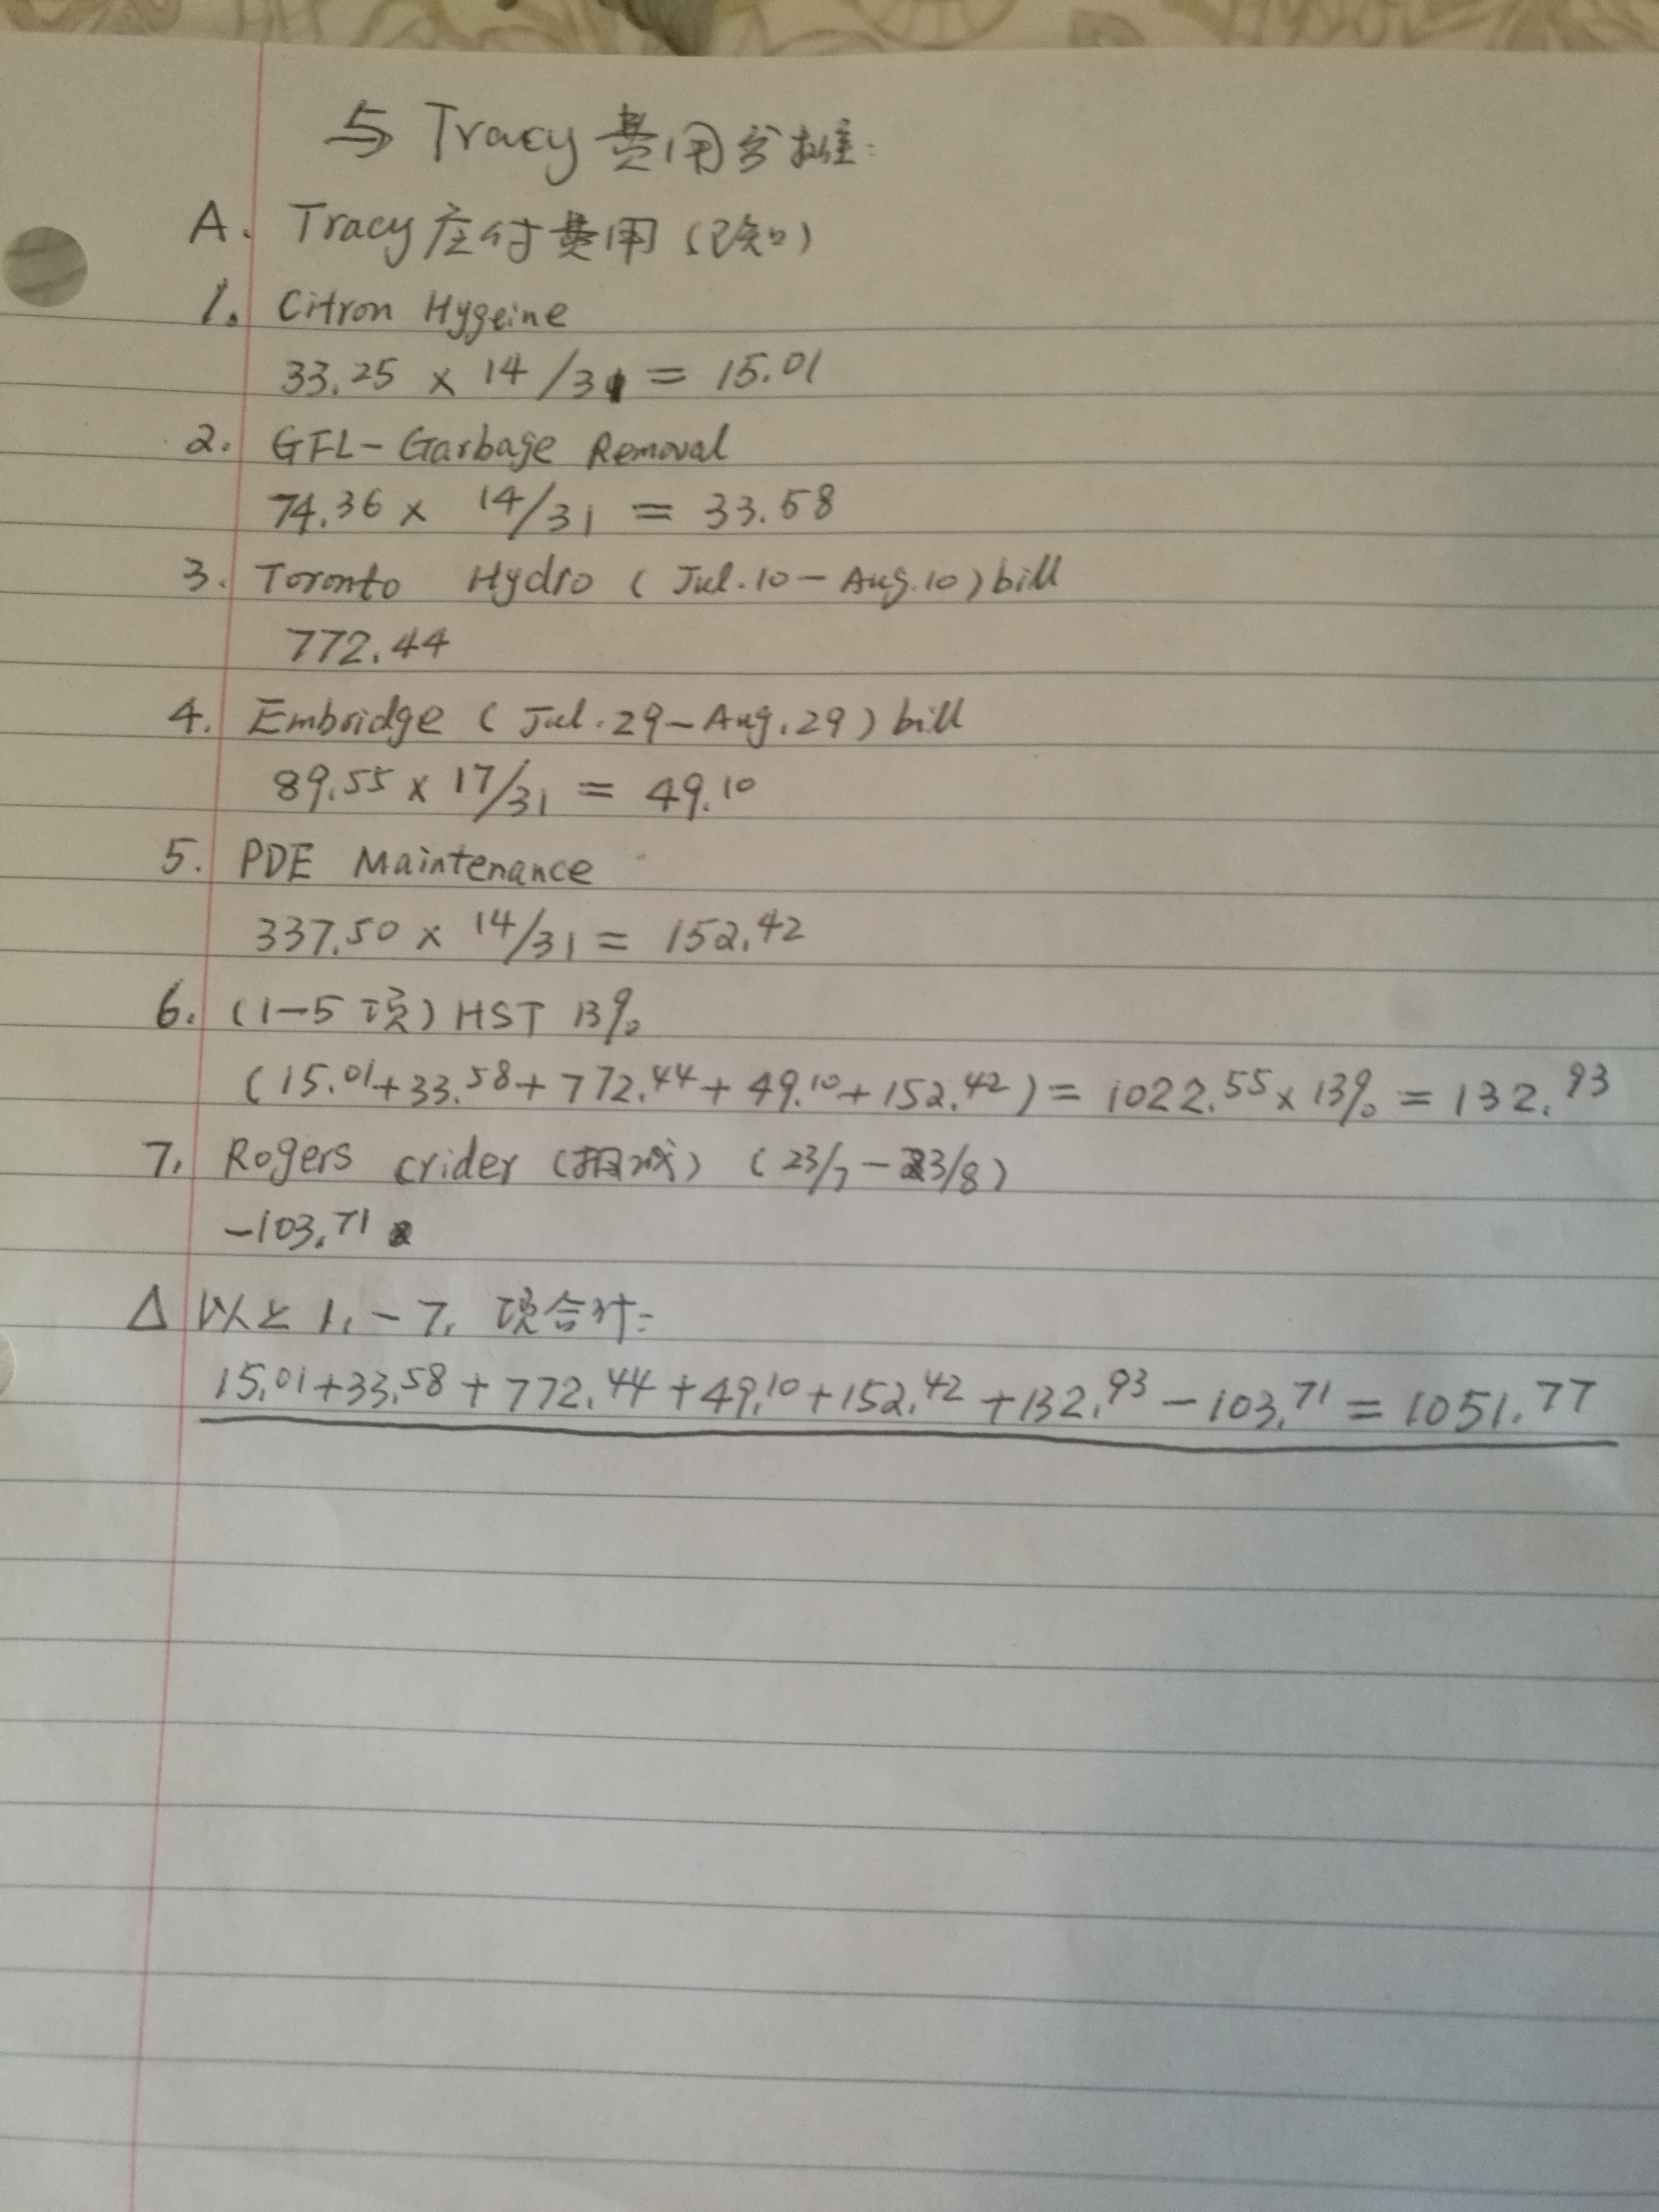 与 Tracy 费用分摊:
A. Tracy 应付费用 (已知)
1. Citron Hygeine
33.25 x 14/31 = 15.01
2. GFL - Garbage Removal
74.36 x 14/31 = 33.58
3. Toronto Hydro ( Jul.10 - Aug.10 ) bill
772.44
4. Embridge ( Jul.29 - Aug.29 ) bill
89.55 x 17/31 = 49.10
5. PDE Maintenance
337.50 x 14/31 = 152.42
6. (1-5项) HST 13%
(15.01+33.58+772.44+49.10+152.42) = 1022.55 x 13% = 132.93
7. Rogers crider (扣减) (23/7 - 23/8)
-103.71
Δ 以上 1. - 7. 项合计:
15.01+33.58+772.44+49.10+152.42+132.93-103.71 = 1051.77